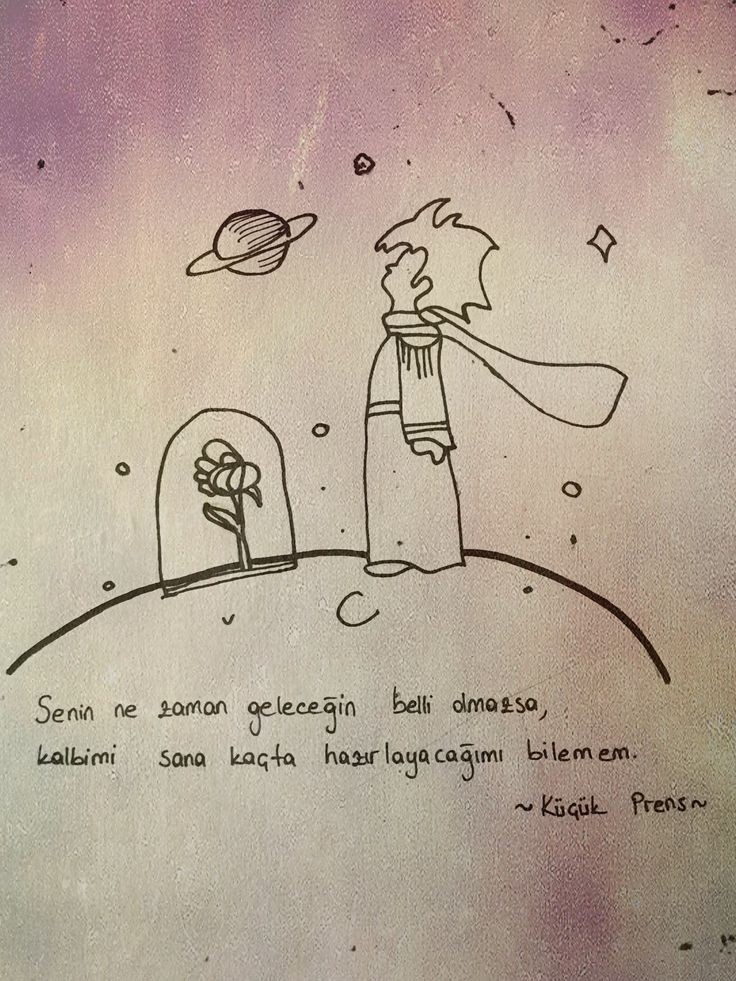 Senin ne zaman geleceğin belli olmazsa,
kalbimi sana kaçta hazırlayacağımı bilemem.
~Küçük Prens~